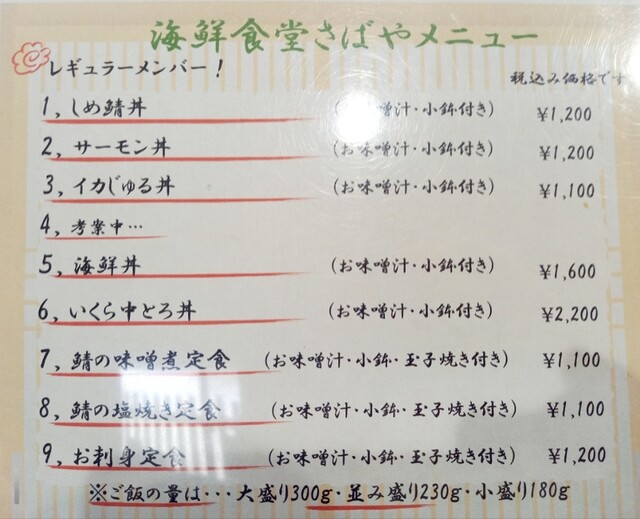 海鮮食堂さばやメニュー
レギュラーメンバー！
税込み価格です
1, しめ鯖丼 (お味噌汁・小鉢付き) ¥1,200
2, サーモン丼 (お味噌汁・小鉢付き) ¥1,200
3, イカじゅる丼 (お味噌汁・小鉢付き) ¥1,100
4, 考案中…
5, 海鮮丼 (お味噌汁・小鉢付き) ¥1,600
6, いくら中とろ丼 (お味噌汁・小鉢付き) ¥2,200
7, 鯖の味噌煮定食 (お味噌汁・小鉢・玉子焼き付き) ¥1,100
8, 鯖の塩焼き定食 (お味噌汁・小鉢・玉子焼き付き) ¥1,100
9, お刺身定食 (お味噌汁・小鉢・玉子焼き付き) ¥1,200
※ご飯の量は・・・大盛り300g・並み盛り230g・小盛り180g